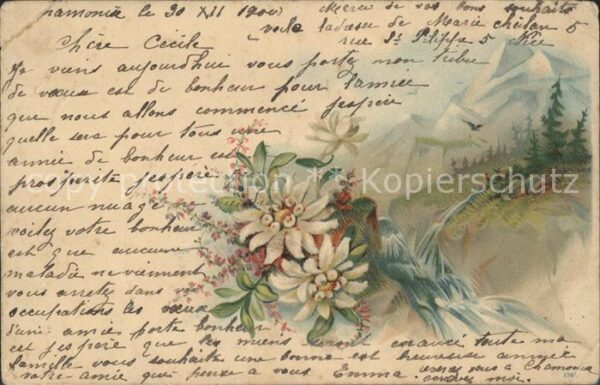 Chamonix le 30 XII 1900
Merci de vos bons souhaits
voila ladresse de Marie 5
rue St Philippe 5 Nice
Chère Cécile
Je viens aujourdhui vous portez mon tribu
de vœux est de bonheur pour l'année
que nous allons commencé jespère
quelle sera pour tous une
année de bonheur est
prosperite jespère
aucun nuage ne
voilez votre bonheur
est que aucune
maladie ne viennent
vous arretez dans vos
occupations les vœux
d'une amie porte bonheur
est jespère que les miens seront exaucé toute ma
famille vous souhaite une bonne est heureuse année
votre amie que pense a vous Emma. a Chamonix
moi.
copy protection * * Kopierschutz